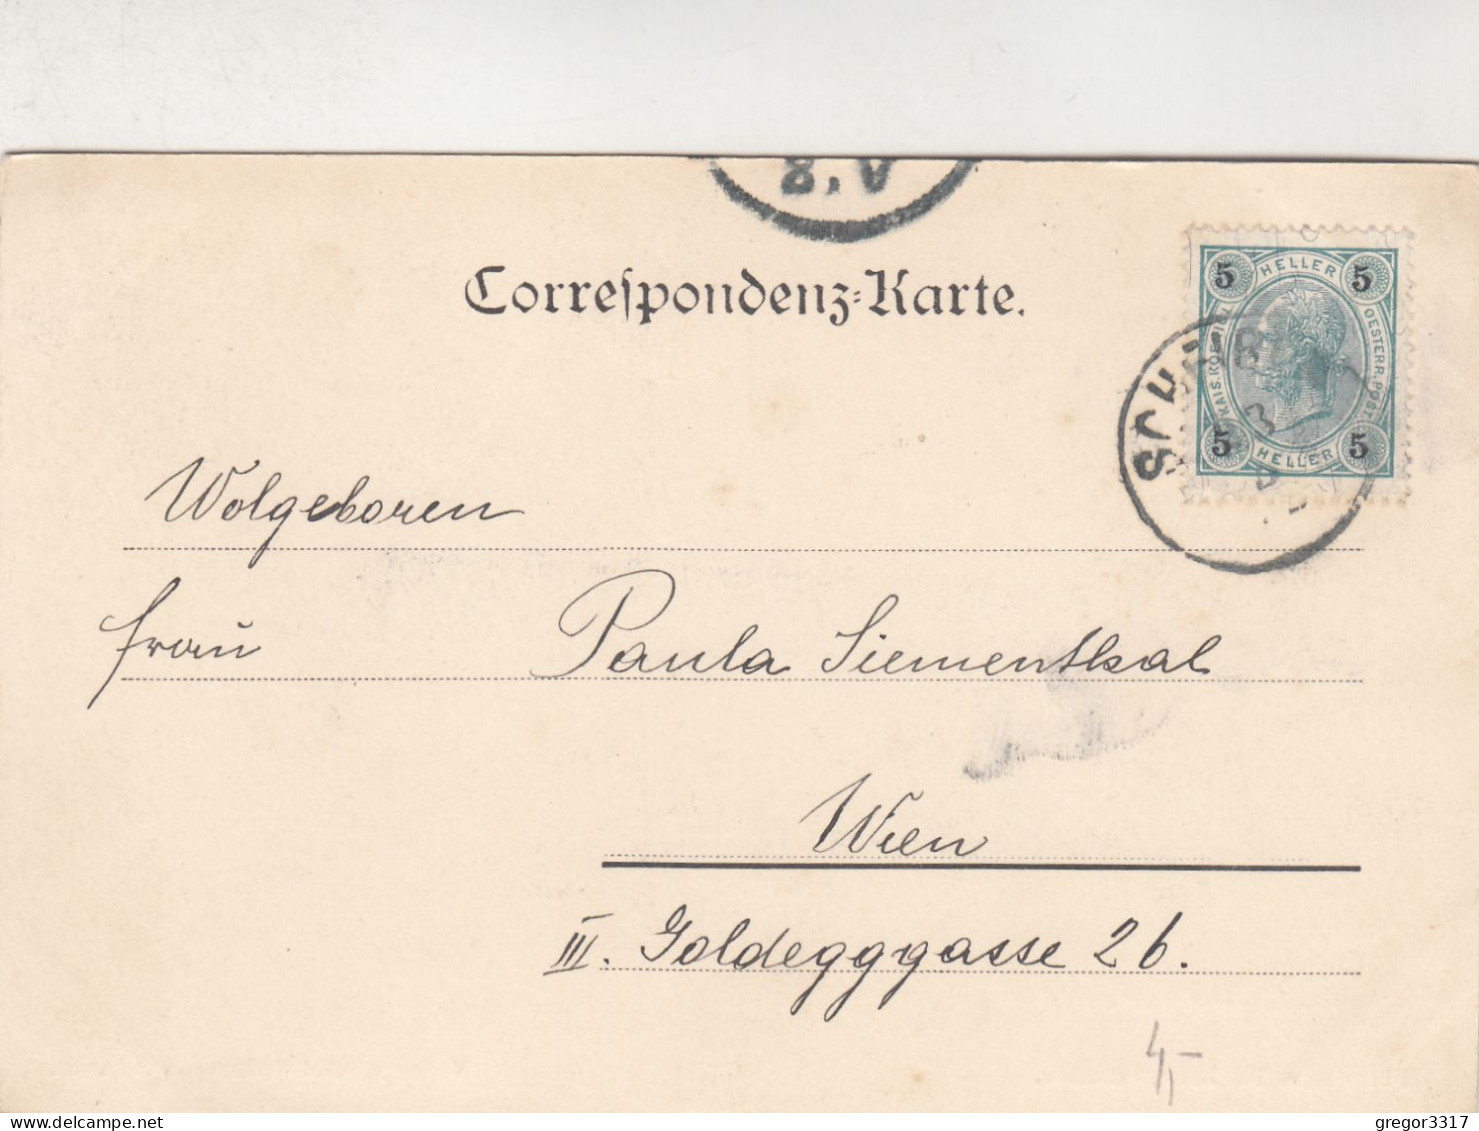 8. V
Correspondenz-Karte.
5 HELLER 5
KAIS. KOENIGL. OESTERR. POST.
5 HELLER 5
Wolgeboren
Frau Paula Siementhal
Wien
III. Goldegggasse 26.
4,-
gregor3317